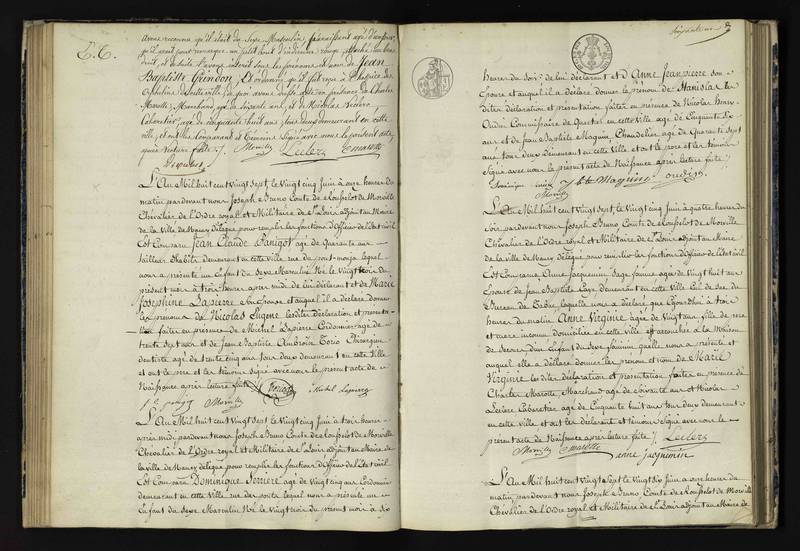 avons reconnu qu'il était du Sexe Masculin, paraissant âgé d'un jour
Baptiste Grindon, Et ordonné qu'il fut remis à l'hospice des
Orphelins de cette ville, de quoi avons dressé acte en présence de Charles
Marotte, Marchand, âgé de soixante ans, et de Nicolas Leclerc
Cabaretier âgé de Cinquante huit ans tous deux demeurant en cette
ville, et ont les comparant et témoins Signé avec nous le présent acte
après lecture faite /.
Leclerc Marotte
L'An Mil huit cent Vingt Sept, le Vingt Cinq Juin à onze heures du
matin pardevant nous Joseph Bruno Comte de Rousselot de Morville
Chevalier de l'Ordre royal et Militaire de St Louis adjoint au Maire
de la Ville de Nancy délégué pour remplir les fonctions d'Officier de l'Etat civil
Est Comparu Jean Claude Panigot âgé de Quarante ans
tailleur d'habits demeurant en cette ville rue du
nous a présenté un Enfant du Sexe Masculin Né le Vingt trois du
présent mois à trois heures après midi de lui déclarant et de Marie
Josephine Lapierre son Epouse et auquel il a déclaré donner
les prénoms de Nicolas Eugène lesdites déclaration et présenta-
-tion faites en présence de Michel Lapierre Cordonnier âgé de
trente Sept ans et de Jean Baptiste Ambroise Toris Chirurgien
dentiste âgé de trente cinq ans tous deux demeurant en cette Ville
et ont le père et les témoins Signé avec nous le présent acte de
Naissance après lecture faite /.
Michel Lapierre
Morville
L'An Mil huit cent Vingt Sept, le Vingt Cinq Juin à trois heures
après midi pardevant nous Joseph Bruno Comte de Rousselot de Morville
Chevalier de l'Ordre royal et Militaire de St Louis adjoint au Maire de
la ville de Nancy délégué pour remplir les fonctions d'Officier de l'Etat civil
Est Comparu Dominique Serriere âgé de Vingt cinq ans Cordonnier
demeurant en cette Ville rue lequel nous a présenté un
Enfant du Sexe Masculin Né le Vingt trois du présent mois à dix
heures du Soir, de lui déclarant et d'Anne Jeanpierre son
Epouse et auquel il a déclaré donner le prénom de Stanislas les
dites déclaration et présentation faites en présence de Nicolas Henry
Oudin Commissaire de Quartier en cette Ville âgé de Cinquante Six
ans et de Jean Baptiste Maguin Chandelier âgé de Quarante Sept
ans tous deux demeurant en cette Ville et ont le père et les témoins
Signé avec nous le présent acte de Naissance après lecture faite /.
Maguin oudin
Morville
L'An Mil huit cent Vingt Sept, le Vingt Cinq Juin à quatre heures du
Soir pardevant nous Joseph Bruno Comte de Rousselot de Morville,
Chevalier de l'Ordre royal et Militaire de St Louis adjoint au Maire
de la ville de Nancy délégué pour remplir les fonctions d'Officier de l'Etat civil
Est Comparue Anne Jacquemin Sage femme âgée de Vingt huit ans
Epouse de Jean Baptiste demeurant en cette Ville
Bureau de Tabac, laquelle nous a déclaré que Ce jourd'hui à trois
heures du matin Anne Virginie âgée de Vingt ans fille de père
et mère inconnus domiciliée en cette Ville est accouchée à la Maison
de Secours d'un Enfant du Sexe féminin, qu'elle nous a présenté et
auquel elle a déclaré donner les prénom et nom de Marie
Virginie lesdites déclaration et présentation faites en présence de
Charles Marotte, Marchand âgé de Soixante ans et Nicolas
Leclerc Cabaretier âgé de Cinquante huit ans tous deux demeurant
en cette Ville, et ont les déclarant et témoins Signé avec nous le
présent acte de Naissance après lecture faite /. Leclerc
Morville Marotte
anne jacquemin
L'An Mil huit cent Vingt Sept le Vingt Six Juin à onze heures du
matin pardevant nous Joseph Bruno Comte de Rousselot de Morville
Chevalier de l'Ordre royal et Militaire de St Louis adjoint au Maire de